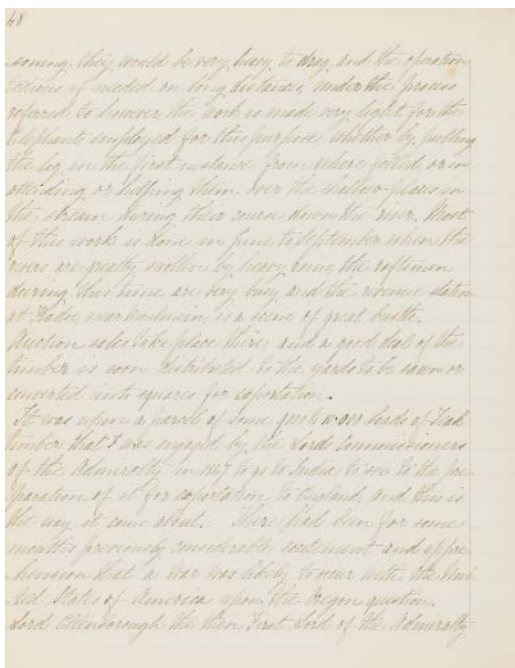 48
soning. they would be very heavy to drag, and the operation
tedious if needed on long distances, under the process
referred to however the work is made very light for the
Elephants employed for this purpose whether by pulling
the log in the first instance from where felled or in
attending or helping them over the shallow places in
the stream during their course down the river. Most
of this work is done in June to September when the
rivers are greatly swollen by heavy rains, the raftsmen
during this time are very busy and the revenue station
at near Moulmein, is a scene of great bustle.
Auction sales take place there and a good deal of the
timber is soon distributed to the yards to be sawn or
converted into squares for exportation.
It was upon a parcel of some loads of Teak
timber that I was engaged by the Lords Commissioners
of the Admiralty in 1847 to go to India to see to the pre
paration of it for exportation to England, and this is
the way it came about. There had been for some
months previously considerable excitement and appre
hension that a war was likely to occur with the Uni
ted States of America upon the Oregon question.
Lord Ellenborough the then First Lord of the Admiralty